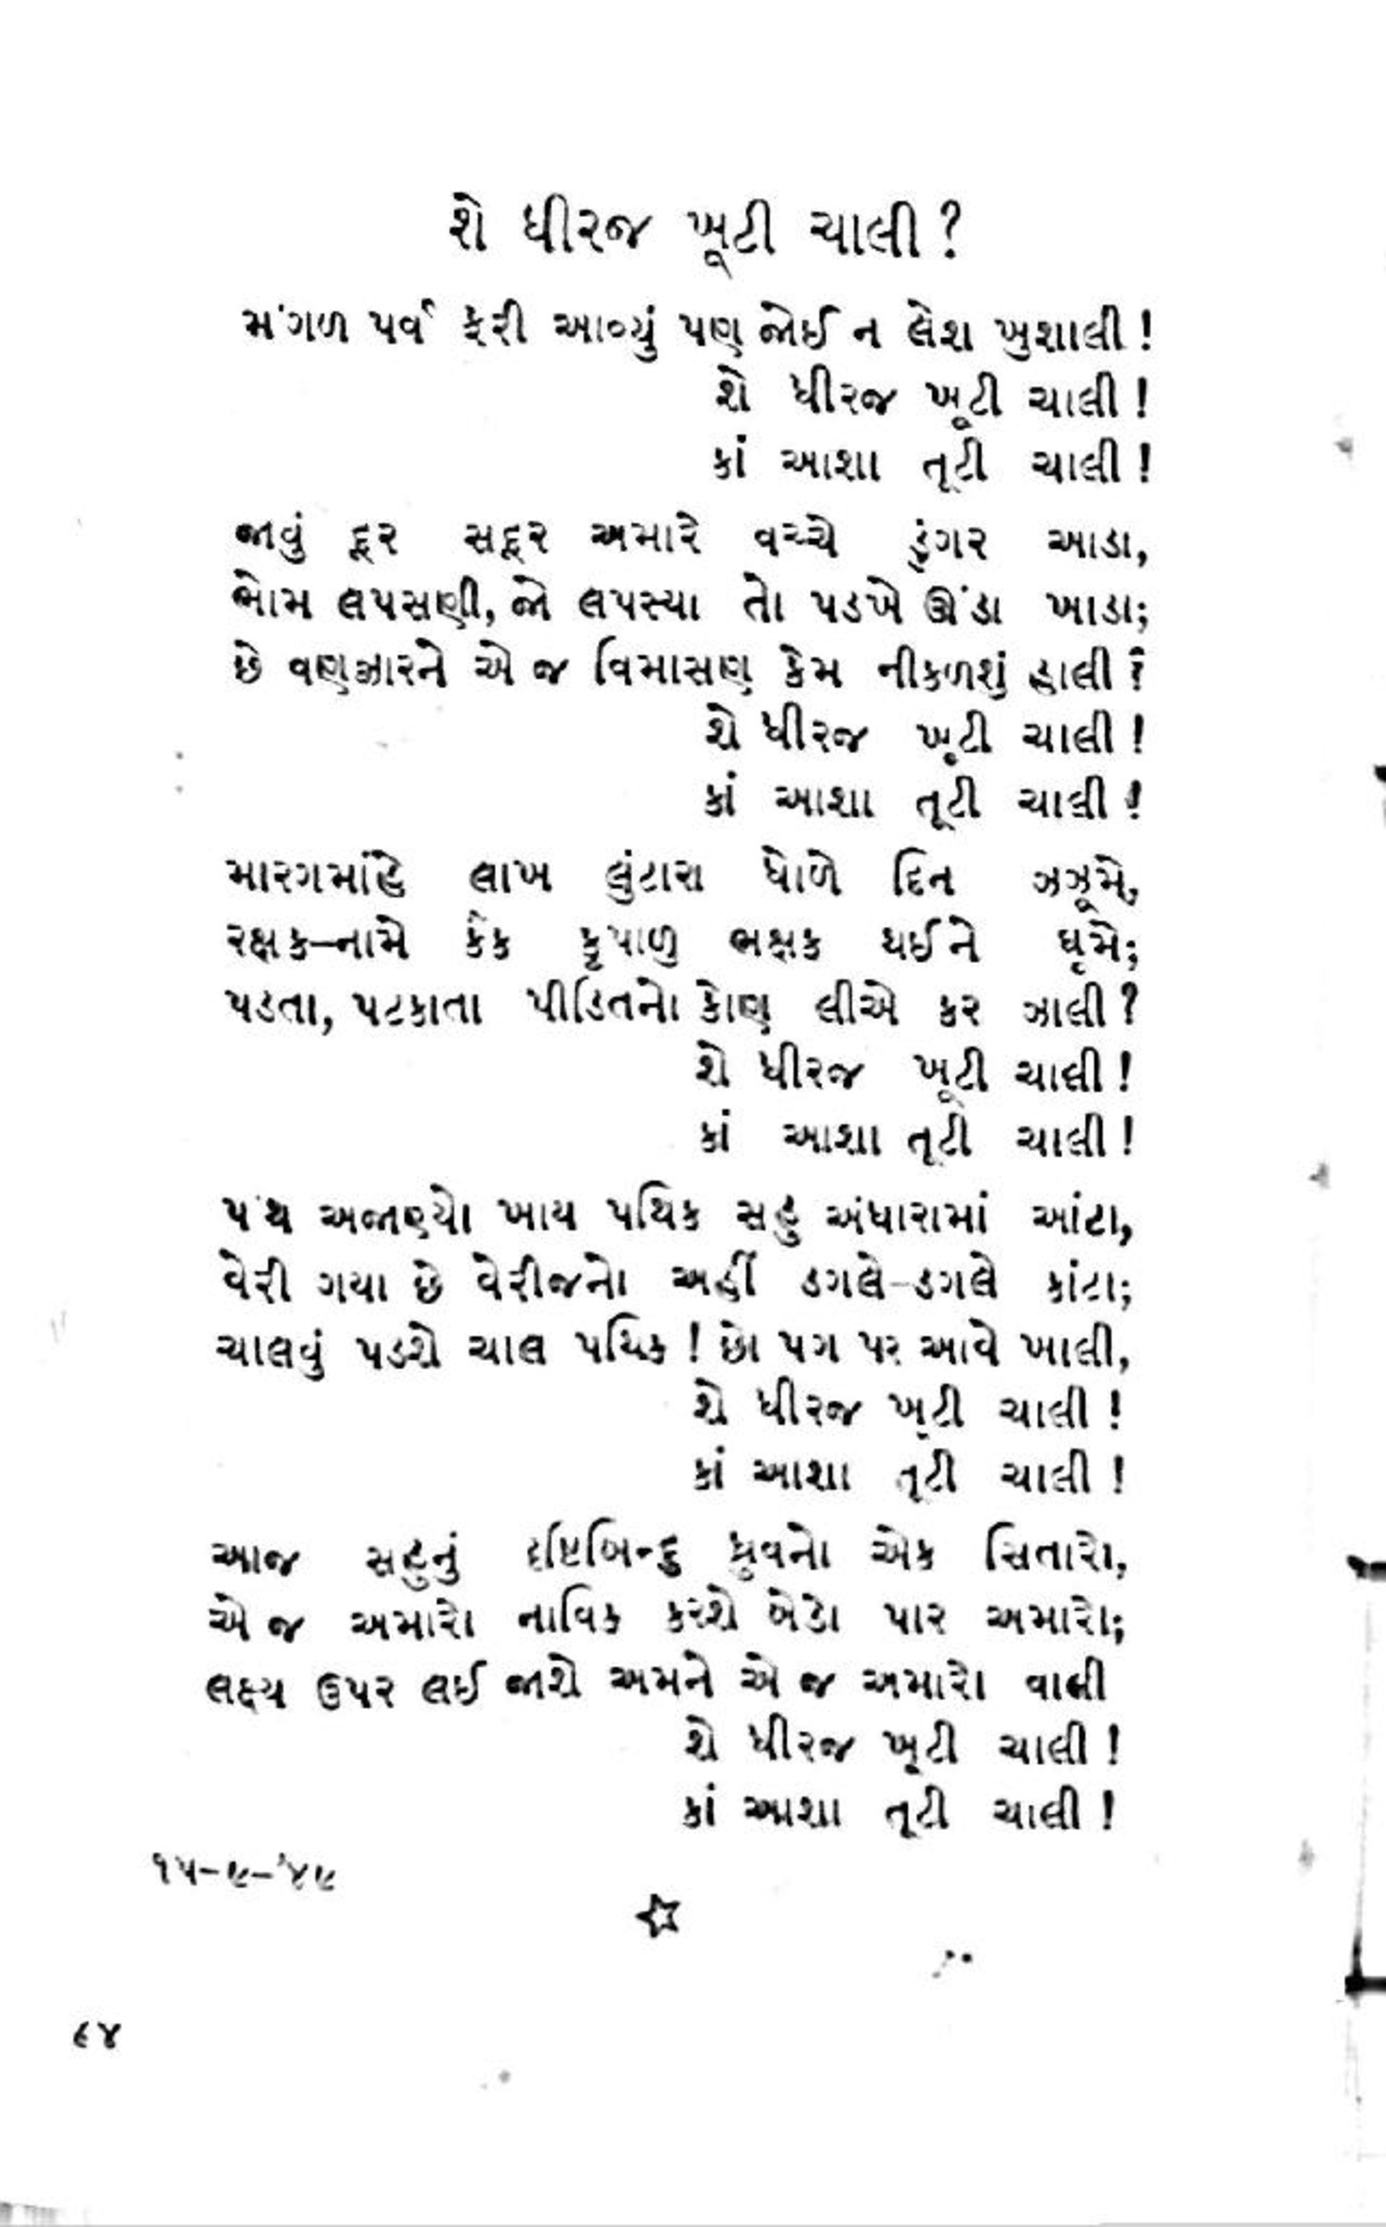 શે ધીરજ ખૂટી ચાલી ?
મંગળ પર્વ ફેરી આવ્યું પણ જોઈ ન લેશ ખુશાલી !
શે ધીરજ ખૂટી ચાલી !
કાં આશા તૂટી ચાલી !
જાવું દૂર સદૂર અમારે વચ્ચે ડુંગર આડા,
ભોમ લપસણી, જો લપસ્યા તો પડખે ઊંડા ખાડા;
છે વણઝારને એ જ વિમાસણ કેમ નીકળશું હાલી ?
શે ધીરજ ખૂટી ચાલી !
કાં આશા તૂટી ચાલી !
મારગમાંહે લાખ લુંટારા ધોળે દિન ઝઝૂમે,
રક્ષક–નામે કૈંક કૃપાળુ ભક્ષક થઈને ઘૂમે;
પડતા, પટકાતા પીડિતનો કોણ લીએ કર ઝાલી ?
શે ધીરજ ખૂટી ચાલી !
કાં આશા તૂટી ચાલી !
પંથ અજાણ્યો ખાય પથિક સહુ અંધારામાં આંટા,
વેરી ગયા છે વેરીજનો અહીં ડગલે-ડગલે કાંટા;
ચાલવું પડશે ચાલ પથિક ! છો પગ પર આવે ખાલી,
શે ધીરજ ખૂટી ચાલી !
કાં આશા તૂટી ચાલી !
આજ સહુનું દૃષ્ટિબિન્દુ ધ્રુવનો એક સિતારો,
એ જ અમારો નાવિક કરશે બેડો પાર અમારો;
લક્ષ્ય ઉપર લઈ જાશે અમને એ જ અમારો વાલી
શે ધીરજ ખૂટી ચાલી !
કાં આશા તૂટી ચાલી !
૧૫-૯-'૪૯
૯૪